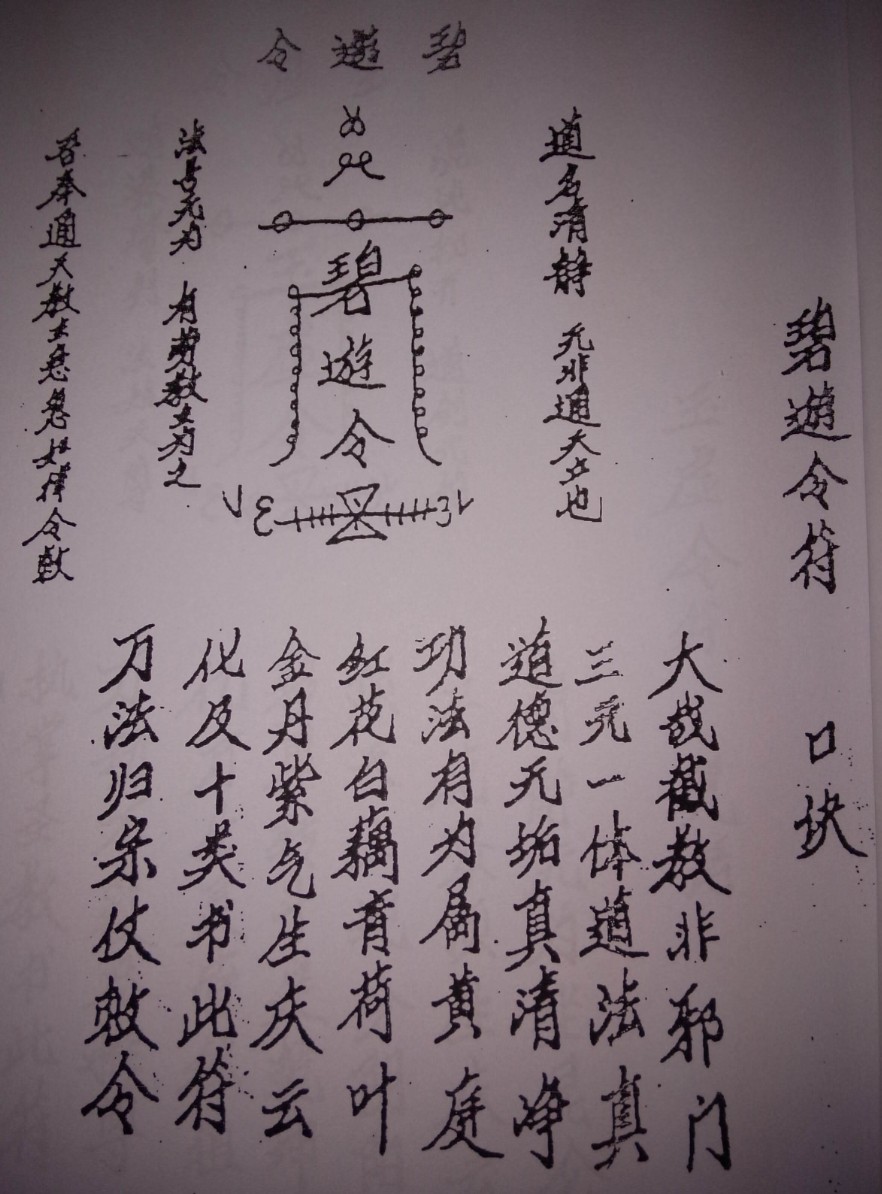 碧遊令符 口诀
碧遊令
道名清静 无非通天立也
碧遊令
法号无为 有劳教主为之
吾奉通天教主急急如律令敕
大哉截教非邪门
三元一体道法真
道德无垢真清净
功法有为属黄庭
红花白藕青荷叶
金丹紫气生庆云
化及十类书此符
万法归宗仗敕令